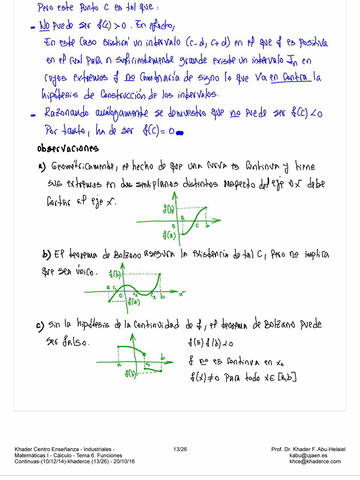 Pero este punto c es tal que:
- No puede ser f(c) > 0. En efecto,
En este caso existiría un intervalo (c-d, c+d) en el que f es positiva
en el cual para n suficientemente grande existe un intervalo In en
cuyos extremos f no cambiaría de signo lo que va en contra la
hipótesis de construcción de los intervalos.
- Razonando análogamente se demuestra que no puede ser f(c) < 0
Por tanto, ha de ser f(c) = 0
Observaciones
a) Geométricamente, el hecho de que una curva es continua y tiene
sus extremos en dos semiplanos distintos respecto del eje ox debe
cortar el eje x.
f(b)
a c b
f(a)
b) El teorema de Bolzano asegura la existencia de tal c, pero no implica
que sea único.
f(b)
c) Sin la hipótesis de la continuidad de f, el teorema de Bolzano puede
ser falso.
f(a) f(b) < 0
f no es continua en x₀
f(x) ≠ 0 para todo x ∈ [a,b]
a x₀ b
f(b)
Khader Centro Enseñanza - Industriales -
Matemáticas I - Cálculo - Tema 6. Funciones
Continuas-(10/12/14)-khaderce (13/26) - 20/10/16
13/26
Prof. Dr. Khader F. Abu-Helaiel
kabu@ujaen.es
khce@khaderce.com